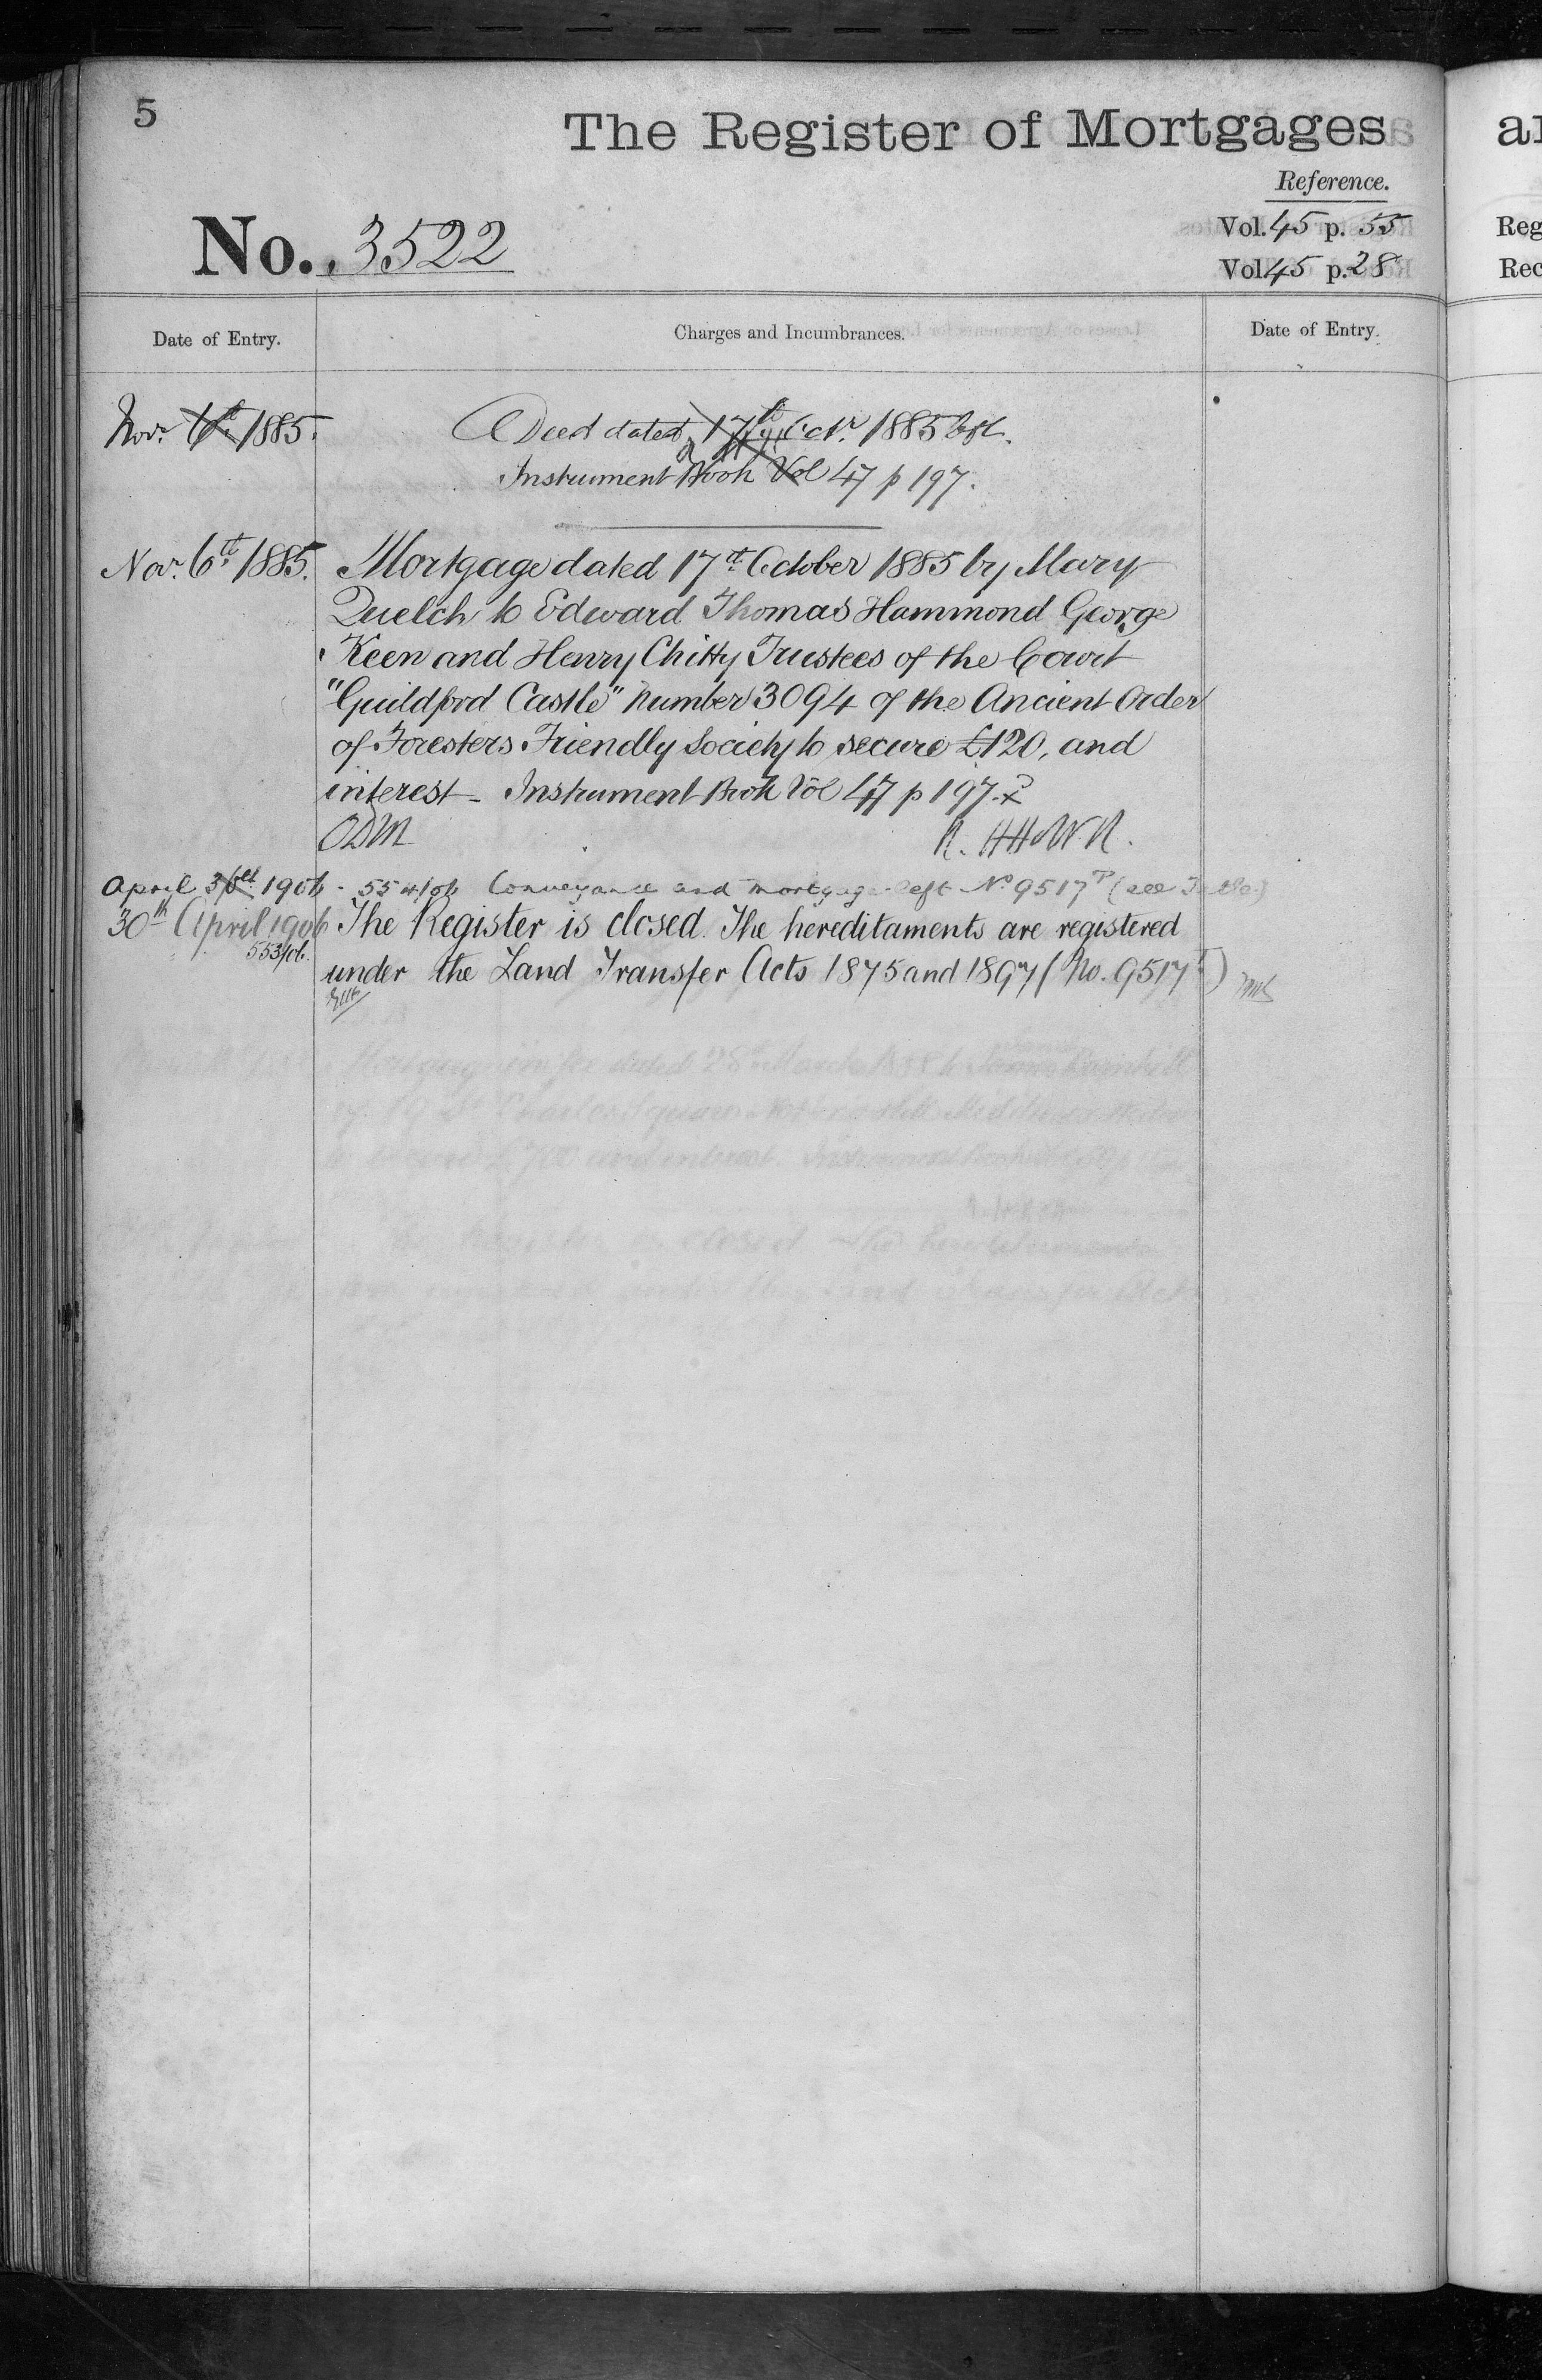 5
The Register of Mortgages
Reference.
No. 3522
Vol. 45 p. 55
Vol. 45 p. 28
Reg
Rec
Date of Entry.
Charges and Incumbrances.
Date of Entry.
Novr. 6th 1885.
A Deed dated 17th Octr. 1885
Instrument Book Vol 47 p 197.
Nov. 6th 1885.
Mortgage dated 17th October 1885 by Mary
Quelch to Edward Thomas Hammond George
Keen and Henry Chitty Trustees of the Court
"Guildford Castle" Number 3094 of the Ancient Order
of Foresters Friendly Society to secure £120, and
interest - Instrument Book Vol 47 p 197.
ODM
April 1906 - 554/06 Conveyance and mortgage left No 9517 P (see Title)
30th April 1906
553/06.
The Register is closed. The hereditaments are registered
under the Land Transfer Acts 1875 and 1897 (No. 9517 P)